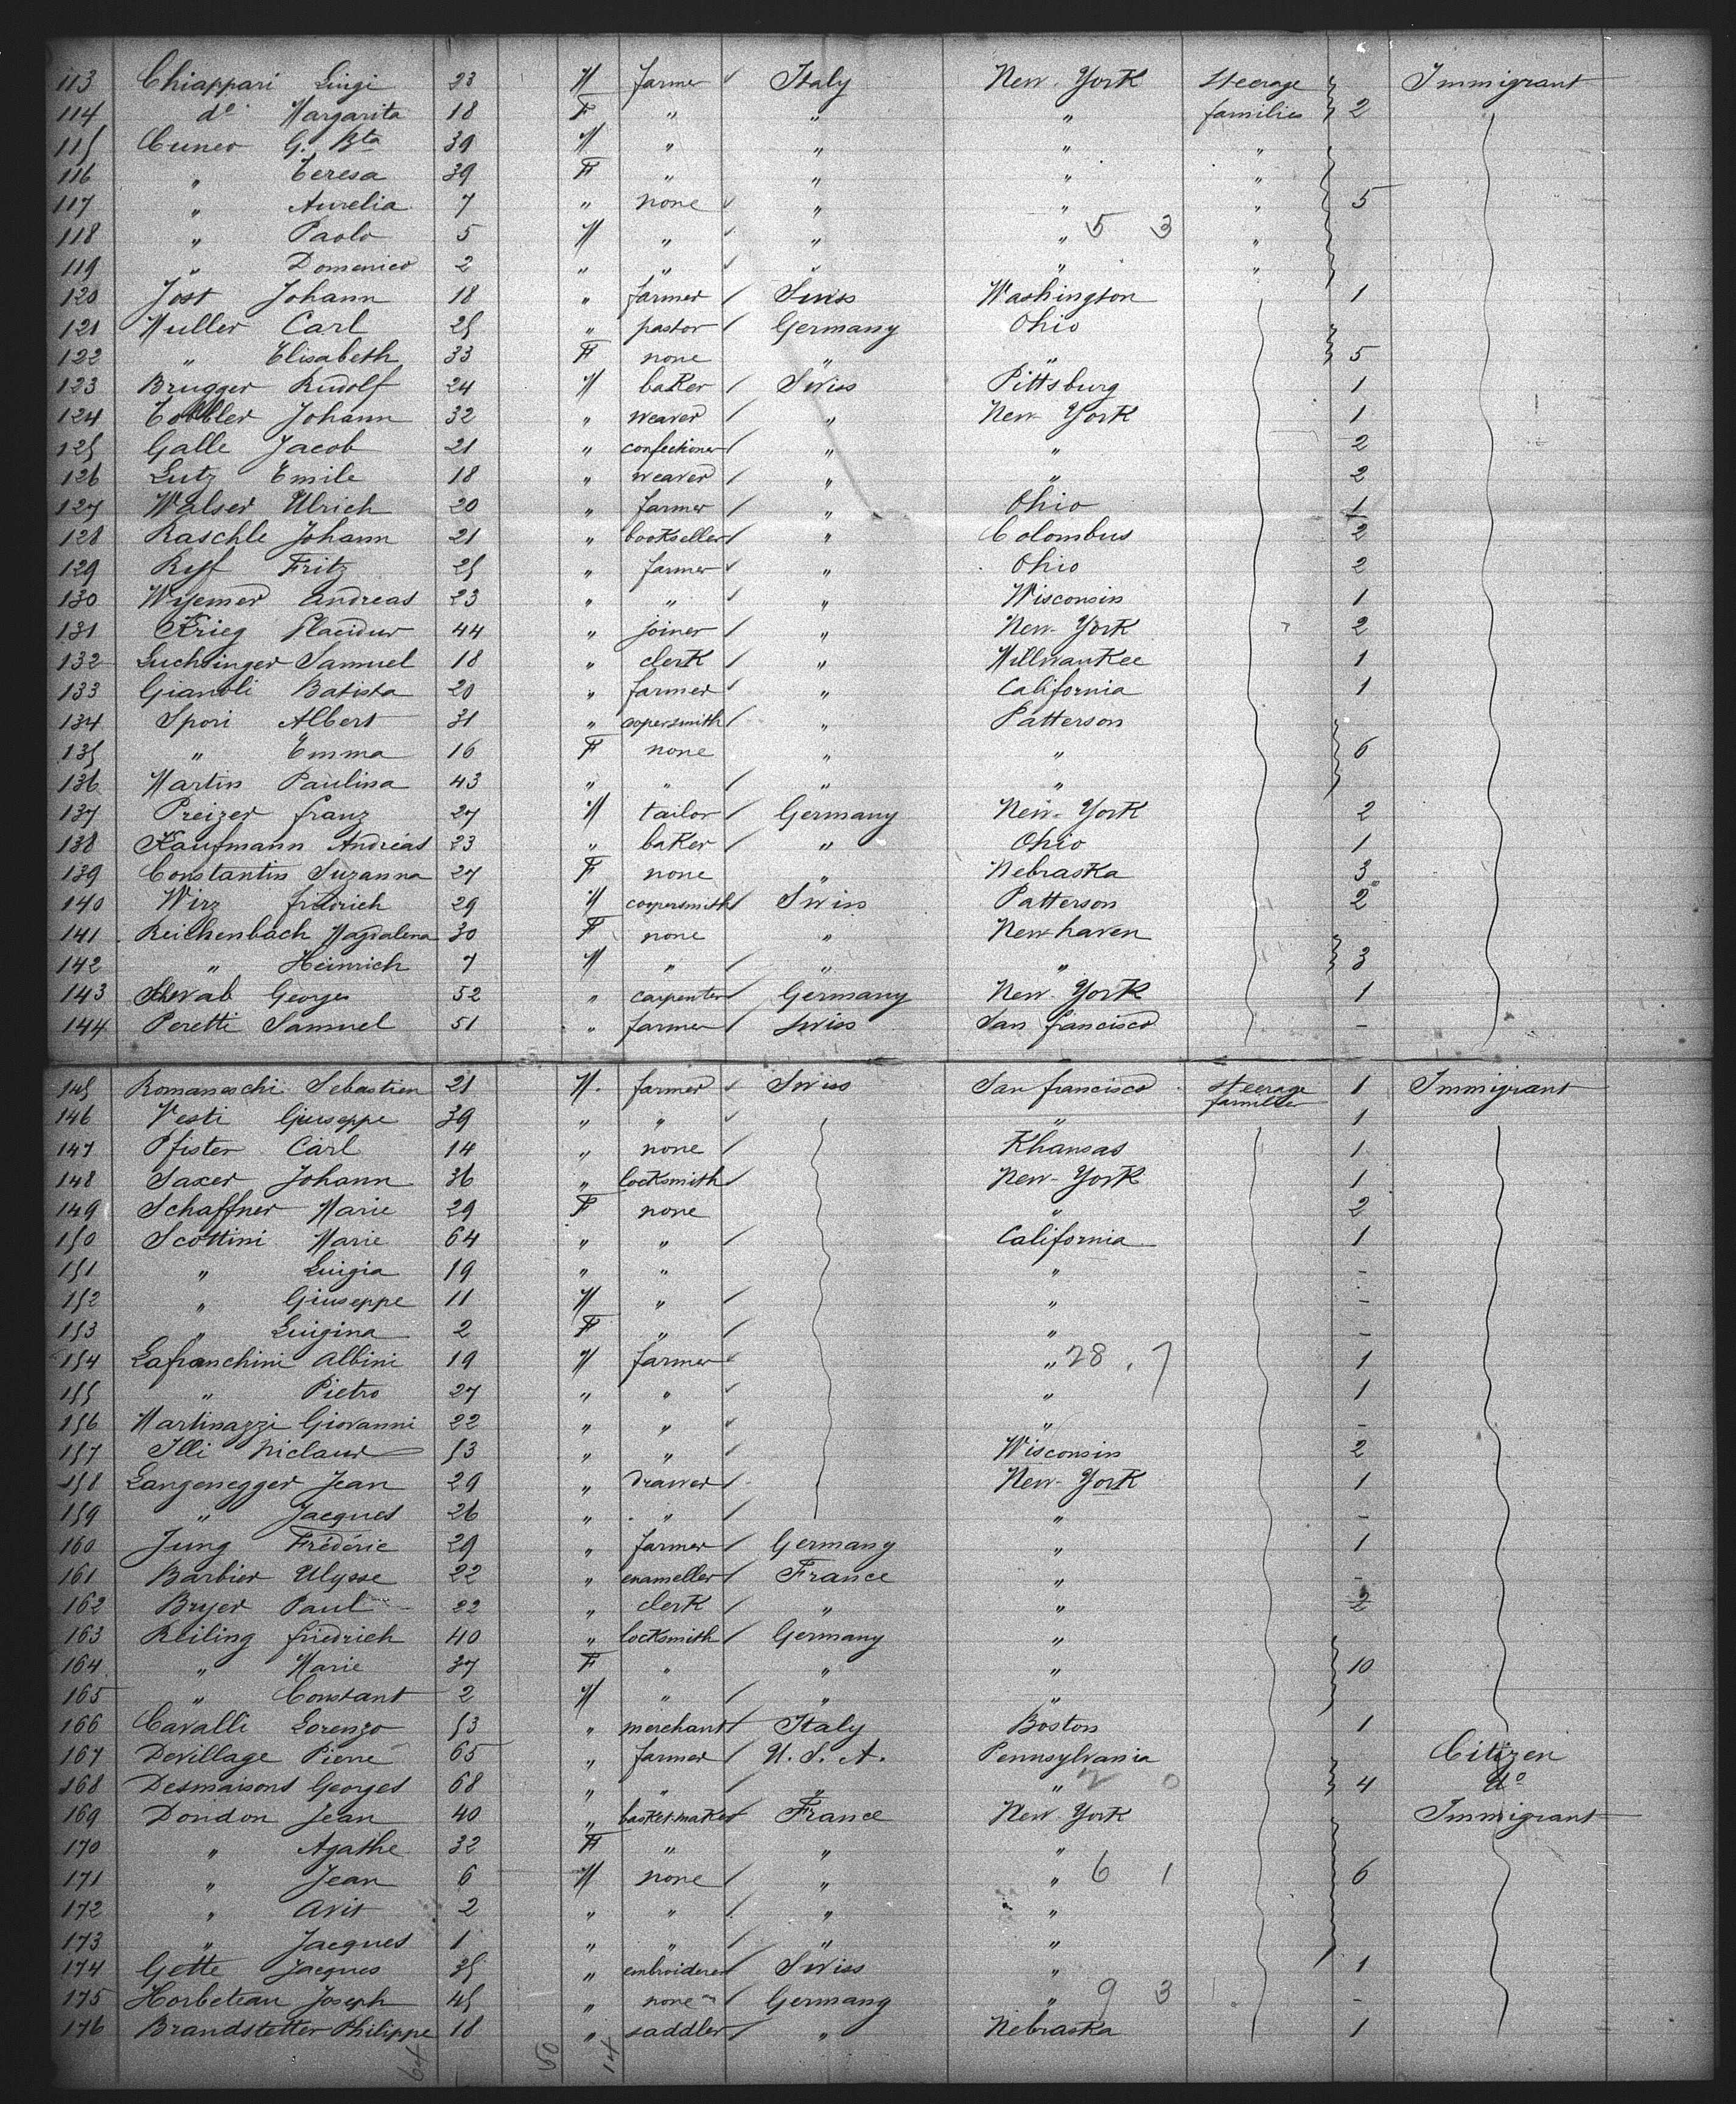 113 Chiappari Luigi 23 M farmer Italy New-York Steerage Immigrant
114 do Margarita 18 F " " " families 2
115 Cuneo G. Bta 39 M " " " "
116 " Teresa 39 F " " " "
117 " Aurelia 7 " none " " " 5
118 " Paolo 5 M " " " 5 3 "
119 " Domenico 2 " " " " "
120 Jost Johann 18 " farmer Swiss Washington 1
121 Muller Carl 25 " pastor Germany Ohio
122 " Elisabeth 33 F none " " 5
123 Brugger Rudolf 24 M baker Swiss Pittsburg 1
124 Tobbler Johann 32 " weaver " New-York 1
125 Galle Jacob 21 " confectioner " " 2
126 Lutz Emile 18 " weaver " " 2
127 Walser Ulrich 20 " farmer " Ohio 1
128 Raschle Johann 21 " bookseller " Colombus 2
129 Ryf Fritz 25 " farmer " Ohio 2
130 Andreas 23 " " " Wisconsin 1
131 Krieg Placidus 44 " joiner " New-York 2
132 Luchsinger Samuel 18 " clerk " Millwaukee 1
133 Gianoli Batista 20 " farmer " California 1
134 Spori Albert 31 " copersmith " Patterson
135 " Emma 16 F none " " 6
136 Martin Paulina 43 " " " "
137 Preizer franz 27 M tailor Germany New-York 2
138 Kaufmann Andréas 23 " baker " Ohio 1
139 Constantin Suzanna 27 F none " Nebraska 3
140 Wirz fridrich 29 M coopersmith Swiss Patterson 2
141 Reichenbach Magdalena 30 F none " Newhaven
142 " Heinrich 7 M " " " 3
143 Schwab Georges 52 " carpenter Germany New-York 1
144 Peretti Samuel 51 " farmer Swiss San francisco -
145 Romaneschi Sebastien 21 M. farmer Swiss San francisco steerage 1 Immigrant
146 Vesti Giuseppe 39 " " " families 1
147 Pfister Carl 14 " none Khansas 1
148 Saxer Johann 36 " locksmith New-York 1
149 Schaffner Marie 29 F none " 2
150 Scottini Marie 64 " " California 1
151 " Luigia 19 " " " -
152 " Giuseppe 11 M " " -
153 " Luigina 2 F " " -
154 Lafranchini Albini 19 M farmer " 28 . 7 1
155 " Pietro 27 " " " 1
156 Martinazzi Giovanni 22 " " " -
157 Illi Niclaus 53 " " Wisconsin 2
158 Langenegger Jean 29 " drawer New-York 1
159 " Jacques 26 " " " -
160 Jung Frédéric 29 " farmer Germany " 1
161 Barbier Ulysse 22 " enameller France " -
162 Bryer Paul 22 " clerk " " 2
163 Reiling friedrich 40 " locksmith Germany "
164 " Marie 37 F " " " 10
165 " Constant 2 M " " "
166 Cavalli Lorenzo 53 " merchant Italy Boston 1
167 Devillage Pierre 65 " farmer U. S. A. Pennsylvania Citizen
168 Desmaisons Georges 68 " " " " 2 0 4 do
169 Dondon Jean 40 " basket-maker France New-York Immigrant
170 " Agathe 32 F " " "
171 " Jean 6 M none " " 6 1 6
172 " Avit 2 " " " "
173 " Jacques 1 " " " "
174 Gette Jacques 35 " embroiderer Swiss " 1
175 Horbeteau Joseph 45 " none Germany " 9 3 -
176 Brandstetter Philippe 18 " saddler " Nebraska 1
64 50 14